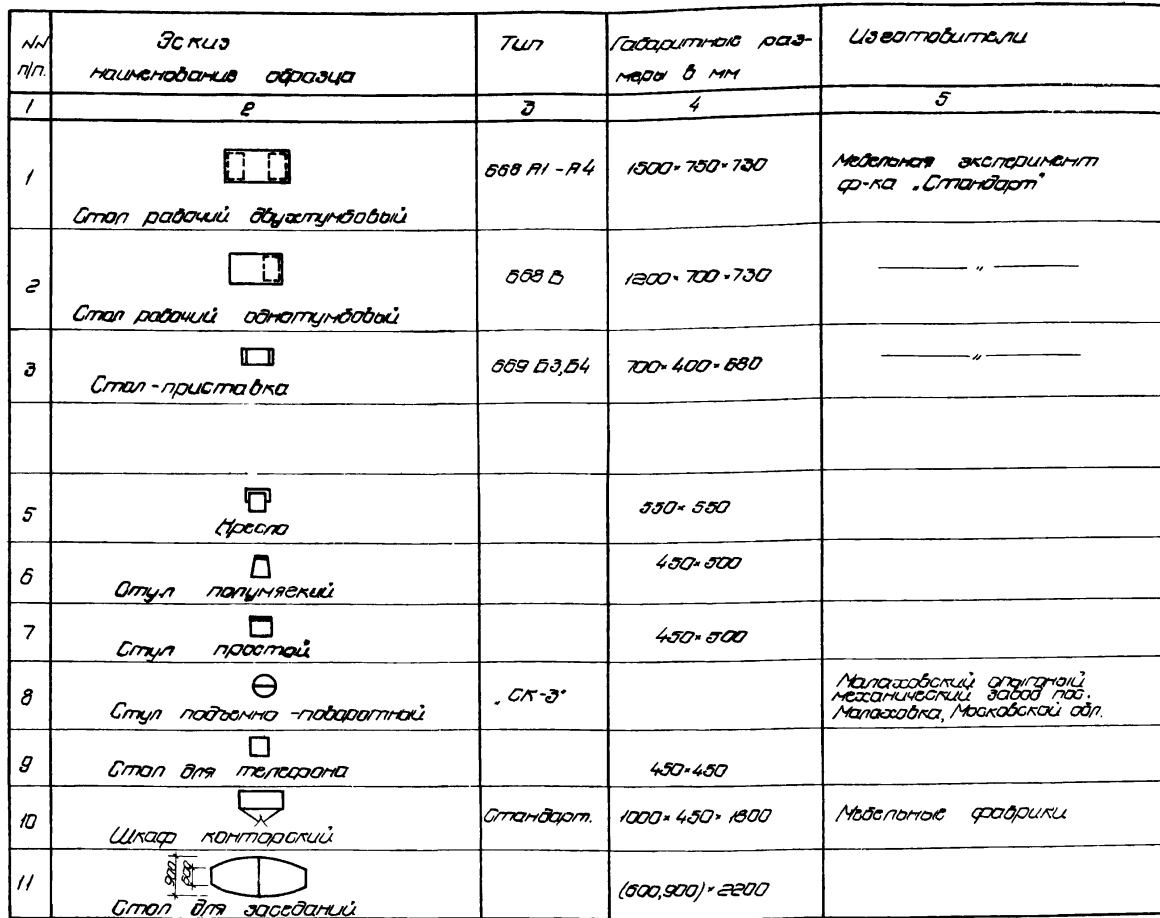 NN п/п. Эскиз наименование образца Тип Габаритные раз-меры в мм Изготовители
1 2 3 4 5
1 Стол рабочий двухтумбовый 668 А1 - А4 1500×750×730 Мебельная эксперимент ф-ка „Стандарт"
2 Стол рабочий однотумбовый 668 Б 1200×700×730 — " —
3 Стол-приставка 669 Б3,Б4 700×400×680 — " —
5 Кресло 550×550
6 Стул полумягкий 450×500
7 Стул простой 450×500
8 Стул подъемно-поворотной „СК-3" Малаховский опытный механический завод пос. Малаховка, Московской обл.
9 Стол для телефона 450×450
10 Шкаф конторский Стандарт. 1000×450×1800 Мебельные фабрики
11 900 600 Стол для заседаний (600,900)×2200